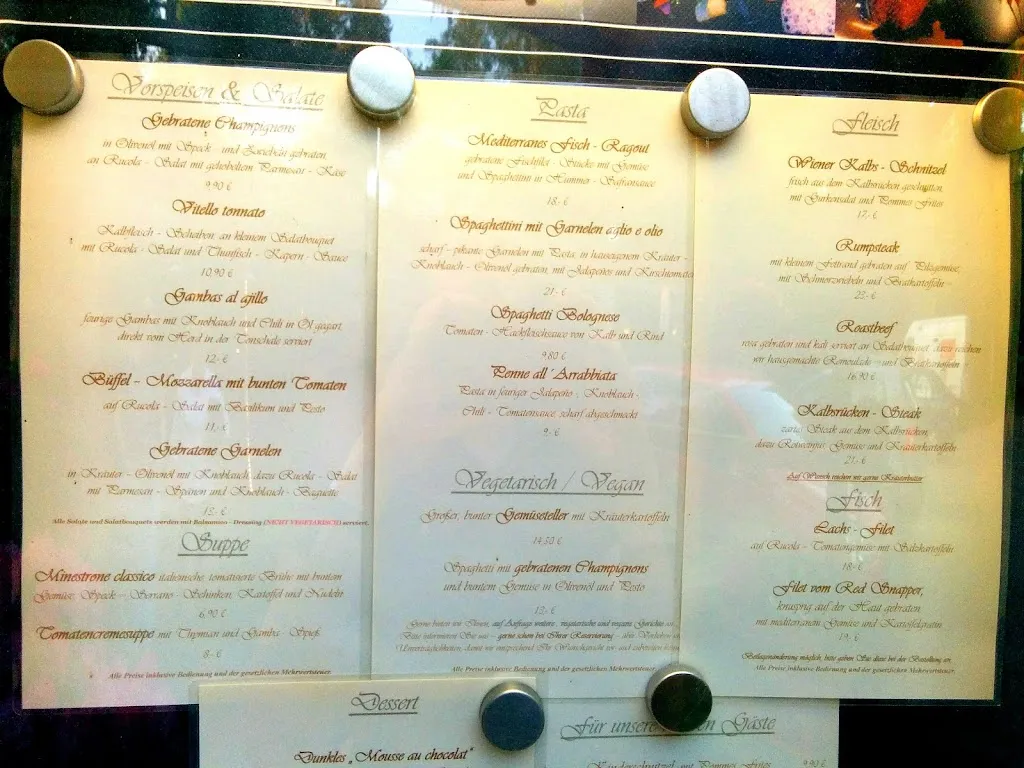 Vorspeisen & Salate
Gebratene Champignons
in Olivenöl mit Speck - und Zwiebeln gebraten,
an Rucola - Salat mit gehobeltem Parmesan - Käse
9,90 €
Vitello tonnato
Kalbfleisch - Scheiben an kleinem Salatbouquet
mit Rucola - Salat und Thunfisch - Kapern - Sauce
10,90 €
Gambas al ajillo
feurige Gambas mit Knoblauch und Chili in Öl gegart,
direkt vom Herd in der Tonschale serviert
12,- €
Büffel - Mozzarella mit bunten Tomaten
auf Rucola - Salat mit Basilikum und Pesto
11,- €
Gebratene Garnelen
in Kräuter - Olivenöl mit Knoblauch, dazu Rucola - Salat
mit Parmesan - Spänen und Knoblauch - Baguette
13,- €
Alle Salate und Salatbouquets werden mit Balsamico - Dressing (NICHT VEGETARISCH) serviert.
Suppe
Minestrone classico italienische, tomatisierte Brühe mit buntem
Gemüse, Speck - Serrano - Schinken, Kartoffel und Nudeln
6,90 €
Tomatencremesuppe mit Thymian und Gamba - Spieß
8,- €
Alle Preise inklusive Bedienung und der gesetzlichen Mehrwertsteuer
Pasta
Mediterranes Fisch - Ragout
gebratene Fischfilet - Stücke mit Gemüse
und Spaghettini in Hummer - Safransauce
18,- €
Spaghettini mit Garnelen aglio e olio
scharf - pikante Garnelen mit Pasta, in hauseigenem Kräuter -
Knoblauch - Olivenöl gebraten, mit Jalapeños und Kirschtomaten
21,- €
Spaghetti Bolognese
Tomaten - Hackfleischsauce von Kalb und Rind
9,80 €
Penne all´Arrabbiata
Pasta in feuriger Jalapeño - Knoblauch -
Chili - Tomatensauce, scharf abgeschmeckt
9,- €
Vegetarisch / Vegan
Großer, bunter Gemüseteller mit Kräuterkartoffeln
14,50 €
Spaghetti mit gebratenen Champignons
und buntem Gemüse in Olivenöl und Pesto
12,- €
Gerne bieten wir Ihnen, auf Anfrage weitere vegetarische und vegane Gerichte an.
Bitte informieren Sie uns - gerne schon bei Ihrer Reservierung - über Vorlieben
Unverträglichkeiten, damit wir entsprechend Ihr Wunschgericht
Alle Preise inklusive Bedienung und der gesetzlichen Mehrwertsteuer.
Fleisch
Wiener Kalbs - Schnitzel
frisch aus dem Kalbsrücken geschnitten,
mit Gurkensalat und Pommes Frites
17,- €
Rumpsteak
mit kleinem Fettrand gebraten auf Pilzgemüse,
mit Schmorzwiebeln und Bratkartoffeln
22,- €
Roastbeef
rosa gebraten und kalt serviert an Salatbouquet, dazu reichen
wir hausgemachte Remoulade und Bratkartoffeln
16,90 €
Kalbsrücken - Steak
zartes Steak aus dem Kalbsrücken,
dazu Rotweinjus, Gemüse und Kräuterkartoffeln
21,- €
Auf Wunsch reichen wir gerne Kräuterbutter
Fisch
Lachs - Filet
auf Rucola - Tomatengemüse mit Salzkartoffeln
18,- €
Filet vom Red Snapper,
knusprig auf der Haut gebraten,
mit mediterranem Gemüse und Kartoffelgratin
19,- €
Beilagenänderung möglich, bitte geben Sie diese bei der Bestellung an.
Alle Preise inklusive Bedienung und der gesetzlichen Mehrwertsteuer.
Dessert
Dunkles „Mousse au chocolat"
Für unsere Gäste
Kinderschnitzel mit Pommes Frites 9,90 €